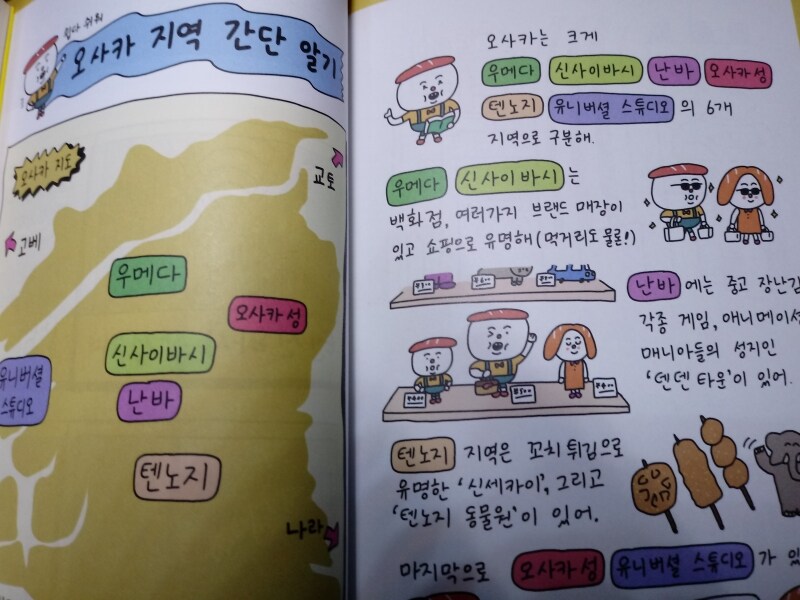 쉽다 쉬워
오사카 지역 간단 알기
오사카 지도
교토
고베
우메다
오사카성
신사이바시
유니버셜
스튜디오
난바
텐노지
나라
오사카는 크게
우메다 신사이바시 난바 오사카성
텐노지 유니버셜 스튜디오 의 6개
지역으로 구분해.
우메다 신사이바시 는
백화점, 여러가지 브랜드 매장이
있고 쇼핑으로 유명해(먹거리도 물론!)
난바 에는 중고 장난감
각종 게임, 애니메이션
매니아들의 성지인
'덴덴 타운'이 있어.
텐노지 지역은 꼬치 튀김으로
유명한 '신세카이', 그리고
'텐노지 동물원'이 있어.
마지막으로 오사카성 유니버셜 스튜디오 가 있